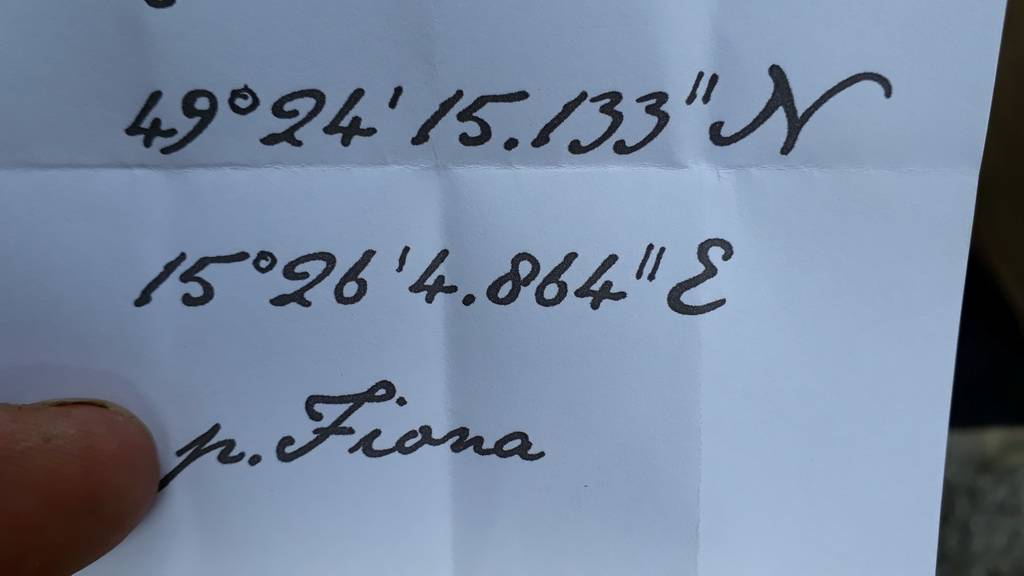 49°24'15.133"N
15°26'4.864"E
p. Fiona